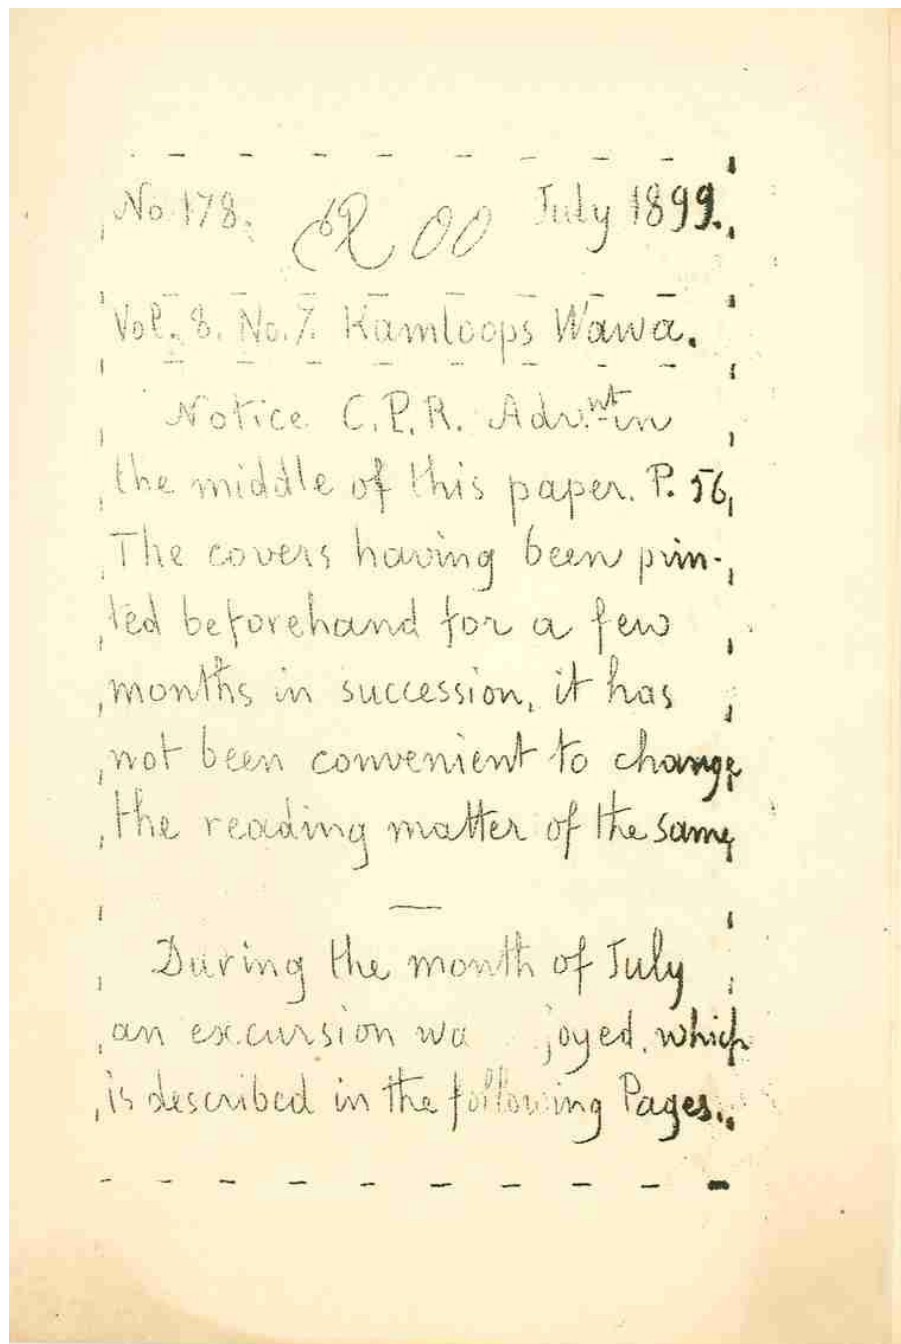 No 178. July 1899.
Vol. 8. No. 7. Kamloops Wawa.
Notice C.P.R. Adv.nt in
the middle of this paper. P. 56
The covers having been prin-
ted beforehand for a few
months in succession, it has
not been convenient to change
the reading matter of the same
During the month of July
an excursion wa joyed, which
is described in the following Pages.